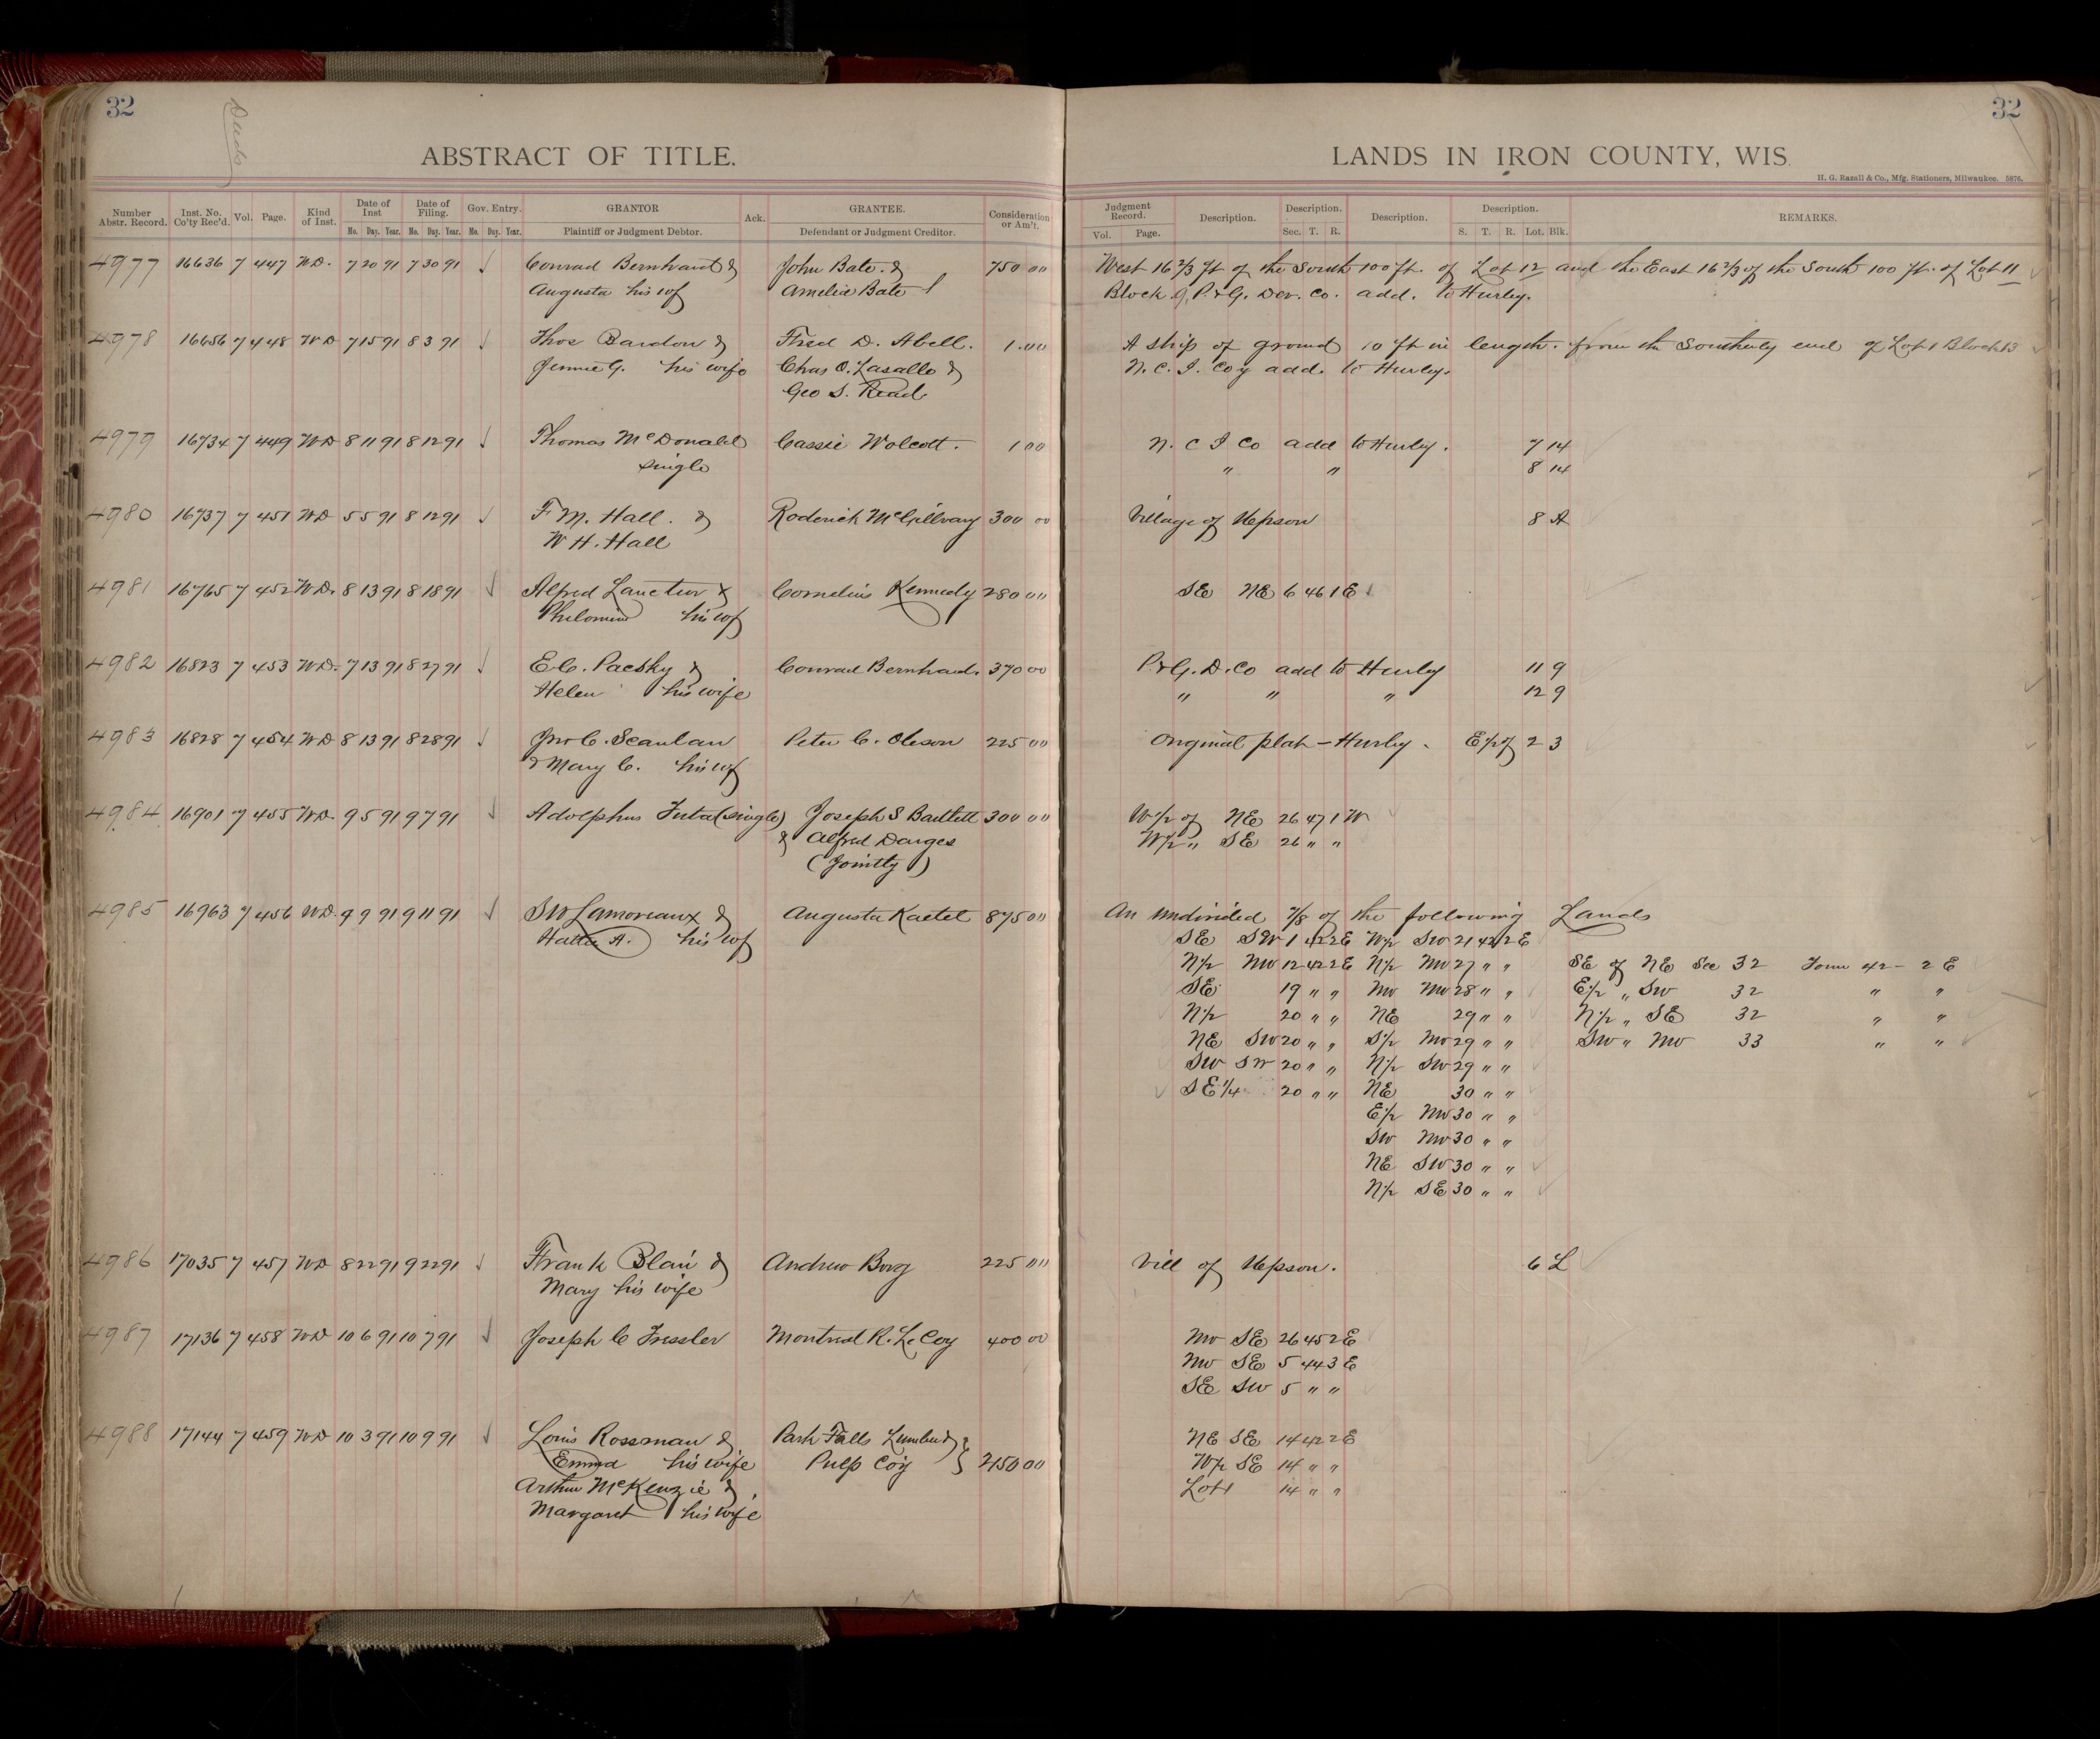 32
Deeds
ABSTRACT OF TITLE.
Number Abstr. Record. Inst. No. Co'ty Rec'd. Vol. Page. Kind of Inst. Date of Inst Date of Filing. Gov. Entry. GRANTOR Ack. GRANTEE. Consideration or Am't.
No. Day. Year. No. Day. Year. No. Day. Year. Plaintiff or Judgment Debtor. Defendant or Judgment Creditor.
4977 16636 7 447 W.D. 7 20 91 7 30 91 Conrad Bernhardt & John Bate. & 750 00
Augusta his wf Amelia Bate
4978 16656 7 448 W D 7 15 91 8 3 91 Thos Bardon & Fred D. Abell. 1.00
Jennie G. his wife Chas O. Lasalle &
Geo S. Read
4979 16734 7 449 W D 8 11 91 8 12 91 Thomas McDonald Cassie Wolcott. 1 00
single
4980 16737 7 451 W D 5 5 91 8 12 91 F M. Hall. & Roderick McGillvary 300 00
W H. Hall
4981 16765 7 452 W D. 8 13 91 8 18 91 Alfred Lanctur & Cornelius Kennedy 280 00
Philomin his wf
4982 16823 7 453 W D. 7 13 91 8 27 91 E C. Paesky & Conrad Bernhard. 370 00
Helen his wife
4983 16828 7 454 W D 8 13 91 8 28 91 Jno C. Scanlan Peter C. Oleson 225 00
& Mary C. his wf
4984 16901 7 455 W D. 9 5 91 9 7 91 Adolphus (single) Joseph S Bartlett 300 00
& Alfred Darges
(Jointly)
4985 16963 7 456 W D. 9 9 91 9 11 91 S W Lamoreaux & Augusta Kaetel 875 00
Hattie A. his wf
4986 17035 7 457 W D 8 22 91 9 22 91 Frank Blair & Andrew Borg 225 00
Mary his wife
4987 17136 7 458 W D 10 6 91 10 7 91 Joseph C Tressler Montreal R. L. Coy 400 00
4988 17144 7 459 W D 10 3 91 10 9 91 Louis Rossman & Park Falls Lumber &
Emma his wife Pulp Coy 2150 00
Arthur McKenzie &
Margaret his wife
32
LANDS IN IRON COUNTY, WIS.
H. G. Razall & Co., Mfg. Stationers, Milwaukee. 5876.
Judgment Record. Description. Description. Description. Description. REMARKS.
Vol. Page. Sec. T. R. S. T. R. Lot. Blk.
West 16 2/3 ft of the South 100 ft. of Lot 12 and the East 16 2/3 of the South 100 ft. of Lot 11
Block 9, P. & G. Dev. Co. add. to Hurley.
A strip of ground 10 ft in length. from the Southerly end of Lot 1 Block 13
N. C. I. Coy add. to Hurley.
N. C I Co add to Hurley. 7 14
" " 8 14
Village of Upson 8 A
SE NE 6 46 1 E
P. & G. D. Co add to Hurley 11 9
" " " 12 9
Original plat - Hurley. E 1/2 of 2 3
W 1/2 of NE 26 47 1 W
W 1/2 " SE 26 " "
An undivided 7/8 of the following Lands
SE SW 1 42 2 E W 1/2 SW 21 42 2 E
N 1/2 NW 12 42 2 E N 1/2 NW 27 " " SE of NE Sec 32 Town 42 - 2 E
SE 19 " " NW NW 28 " " E 1/2 " SW 32 " "
N 1/2 20 " " NE 29 " " N 1/2 " SE 32 " "
NE SW 20 " " S 1/2 NW 29 " " SW " NW 33 " "
SW SW 20 " " N 1/2 SW 29 " "
SE 1/4 20 " " NE 30 " "
E 1/2 NW 30 " "
SW NW 30 " "
NE SW 30 " "
N 1/2 SE 30 " "
Vill of Upson. 6 L
NW SE 26 45 2 E
NW SE 5 44 3 E
SE SW 5 " "
NE SE 14 42 2 E
W 1/2 SE 14 " "
Lot 1 14 " "